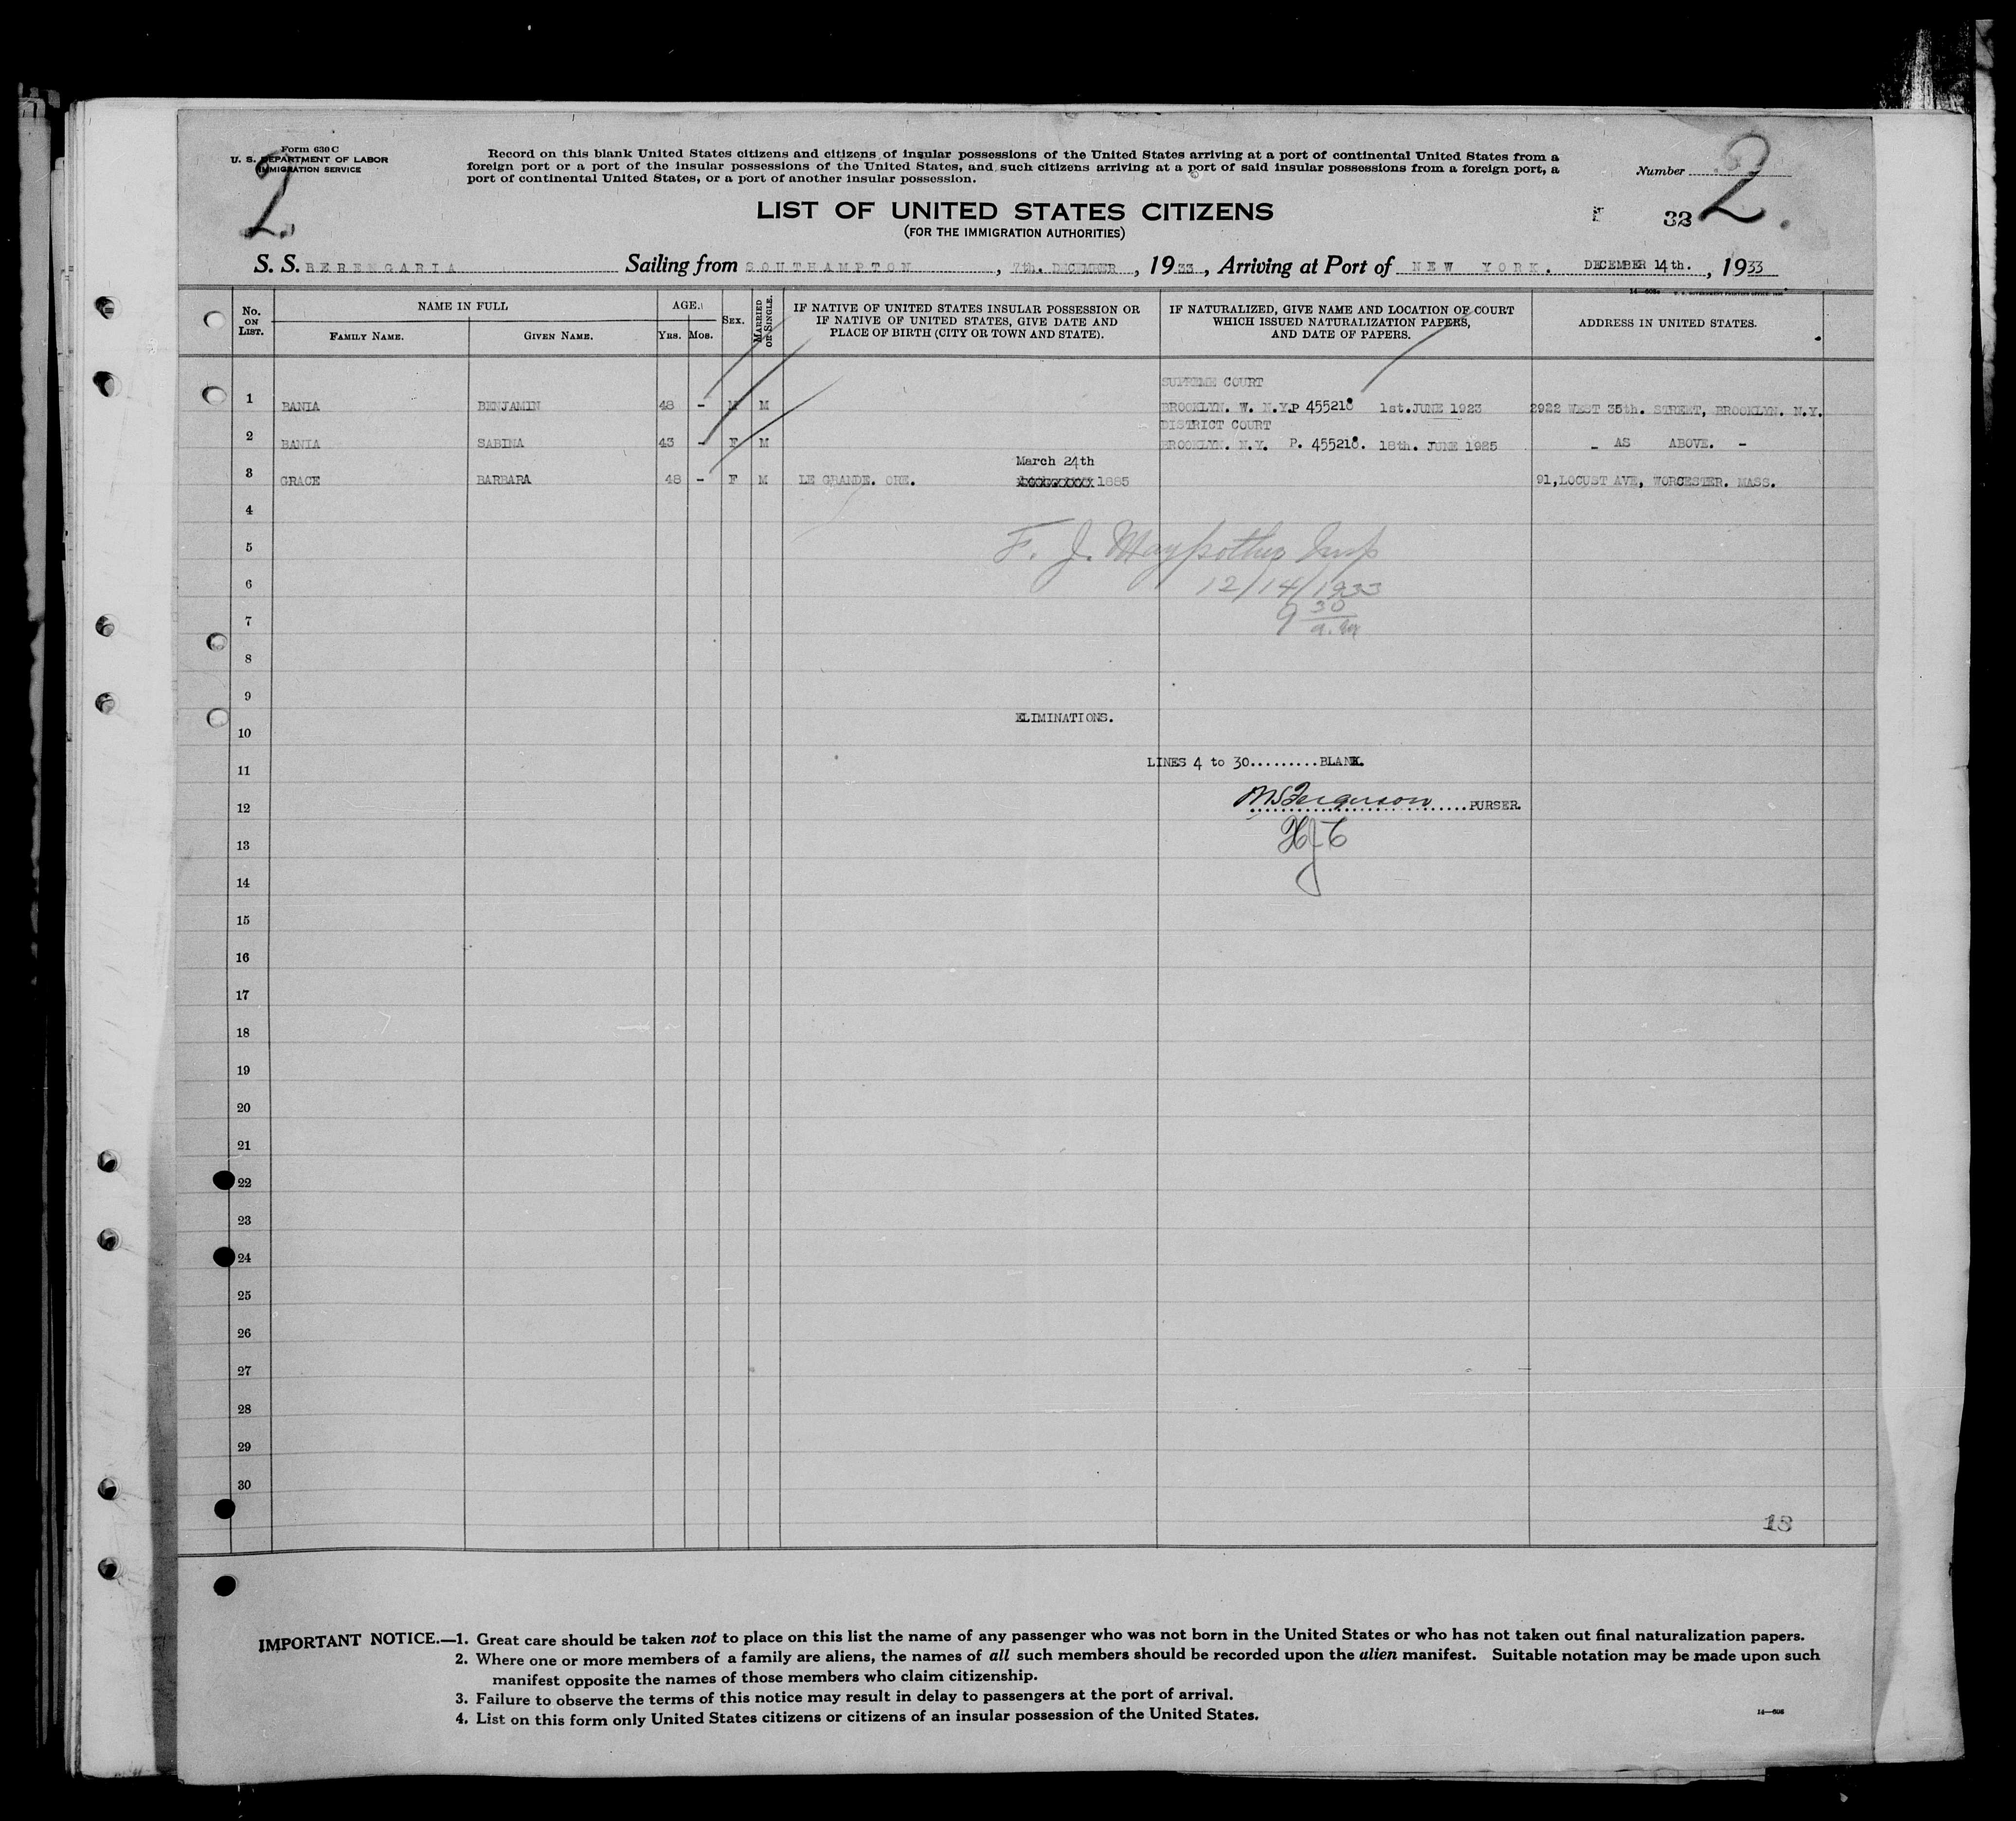 Form 630 C
U. S. DEPARTMENT OF LABOR
IMMIGRATION SERVICE
2
Record on this blank United States citizens and citizens of insular possessions of the United States arriving at a port of continental United States from a
foreign port or a port of the insular possessions of the United States, and such citizens arriving at a port of said insular possessions from a foreign port, a
port of continental United States, or a port of another insular possession.
Number
2.
LIST OF UNITED STATES CITIZENS
(FOR THE IMMIGRATION AUTHORITIES)
S. S. BERENGARIA Sailing from SOUTHAMPTON, 7th. DECEMBER, 1933, Arriving at Port of NEW YORK. DECEMBER 14th., 1933
No. ON LIST. NAME IN FULL FAMILY NAME. GIVEN NAME. AGE. YRS. MOS. SEX. MARRIED OR SINGLE.
IF NATIVE OF UNITED STATES INSULAR POSSESSION OR
IF NATIVE OF UNITED STATES, GIVE DATE AND
PLACE OF BIRTH (CITY OR TOWN AND STATE).
IF NATURALIZED, GIVE NAME AND LOCATION OF COURT
WHICH ISSUED NATURALIZATION PAPERS,
AND DATE OF PAPERS.
ADDRESS IN UNITED STATES.
SUPREME COURT
1 BANIA BENJAMIN 48 - M M BROOKLYN. W. N.Y.P 455218 1st.JUNE 1923 2922 WEST 35th. STREET, BROOKLYN. N.Y.
DISTRICT COURT
2 BANIA SABINA 43 - F M BROOKLYN. N.Y. P. 455218. 18th. JUNE 1925 - AS ABOVE. -
March 24th
3 GRACE BARBARA 48 - F M LE GRANDE. ORE. 1885 91,LOCUST AVE, WORCESTER. MASS.
4
5
F. J.
6
12/14/1933
7
9 30 a.m
8
9
ELIMINATIONS.
10
11 LINES 4 to 30.........BLANK.
12 Ferguson PURSER.
13
14
15
16
17
18
19
20
21
22
23
24
25
26
27
28
29
30
18
IMPORTANT NOTICE.—1. Great care should be taken not to place on this list the name of any passenger who was not born in the United States or who has not taken out final naturalization papers.
2. Where one or more members of a family are aliens, the names of all such members should be recorded upon the alien manifest. Suitable notation may be made upon such
manifest opposite the names of those members who claim citizenship.
3. Failure to observe the terms of this notice may result in delay to passengers at the port of arrival.
4. List on this form only United States citizens or citizens of an insular possession of the United States.